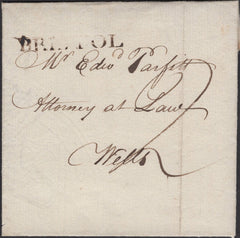 BRISTOL
Mr Edwd Parfitt
Attorney at Law
Wells
2